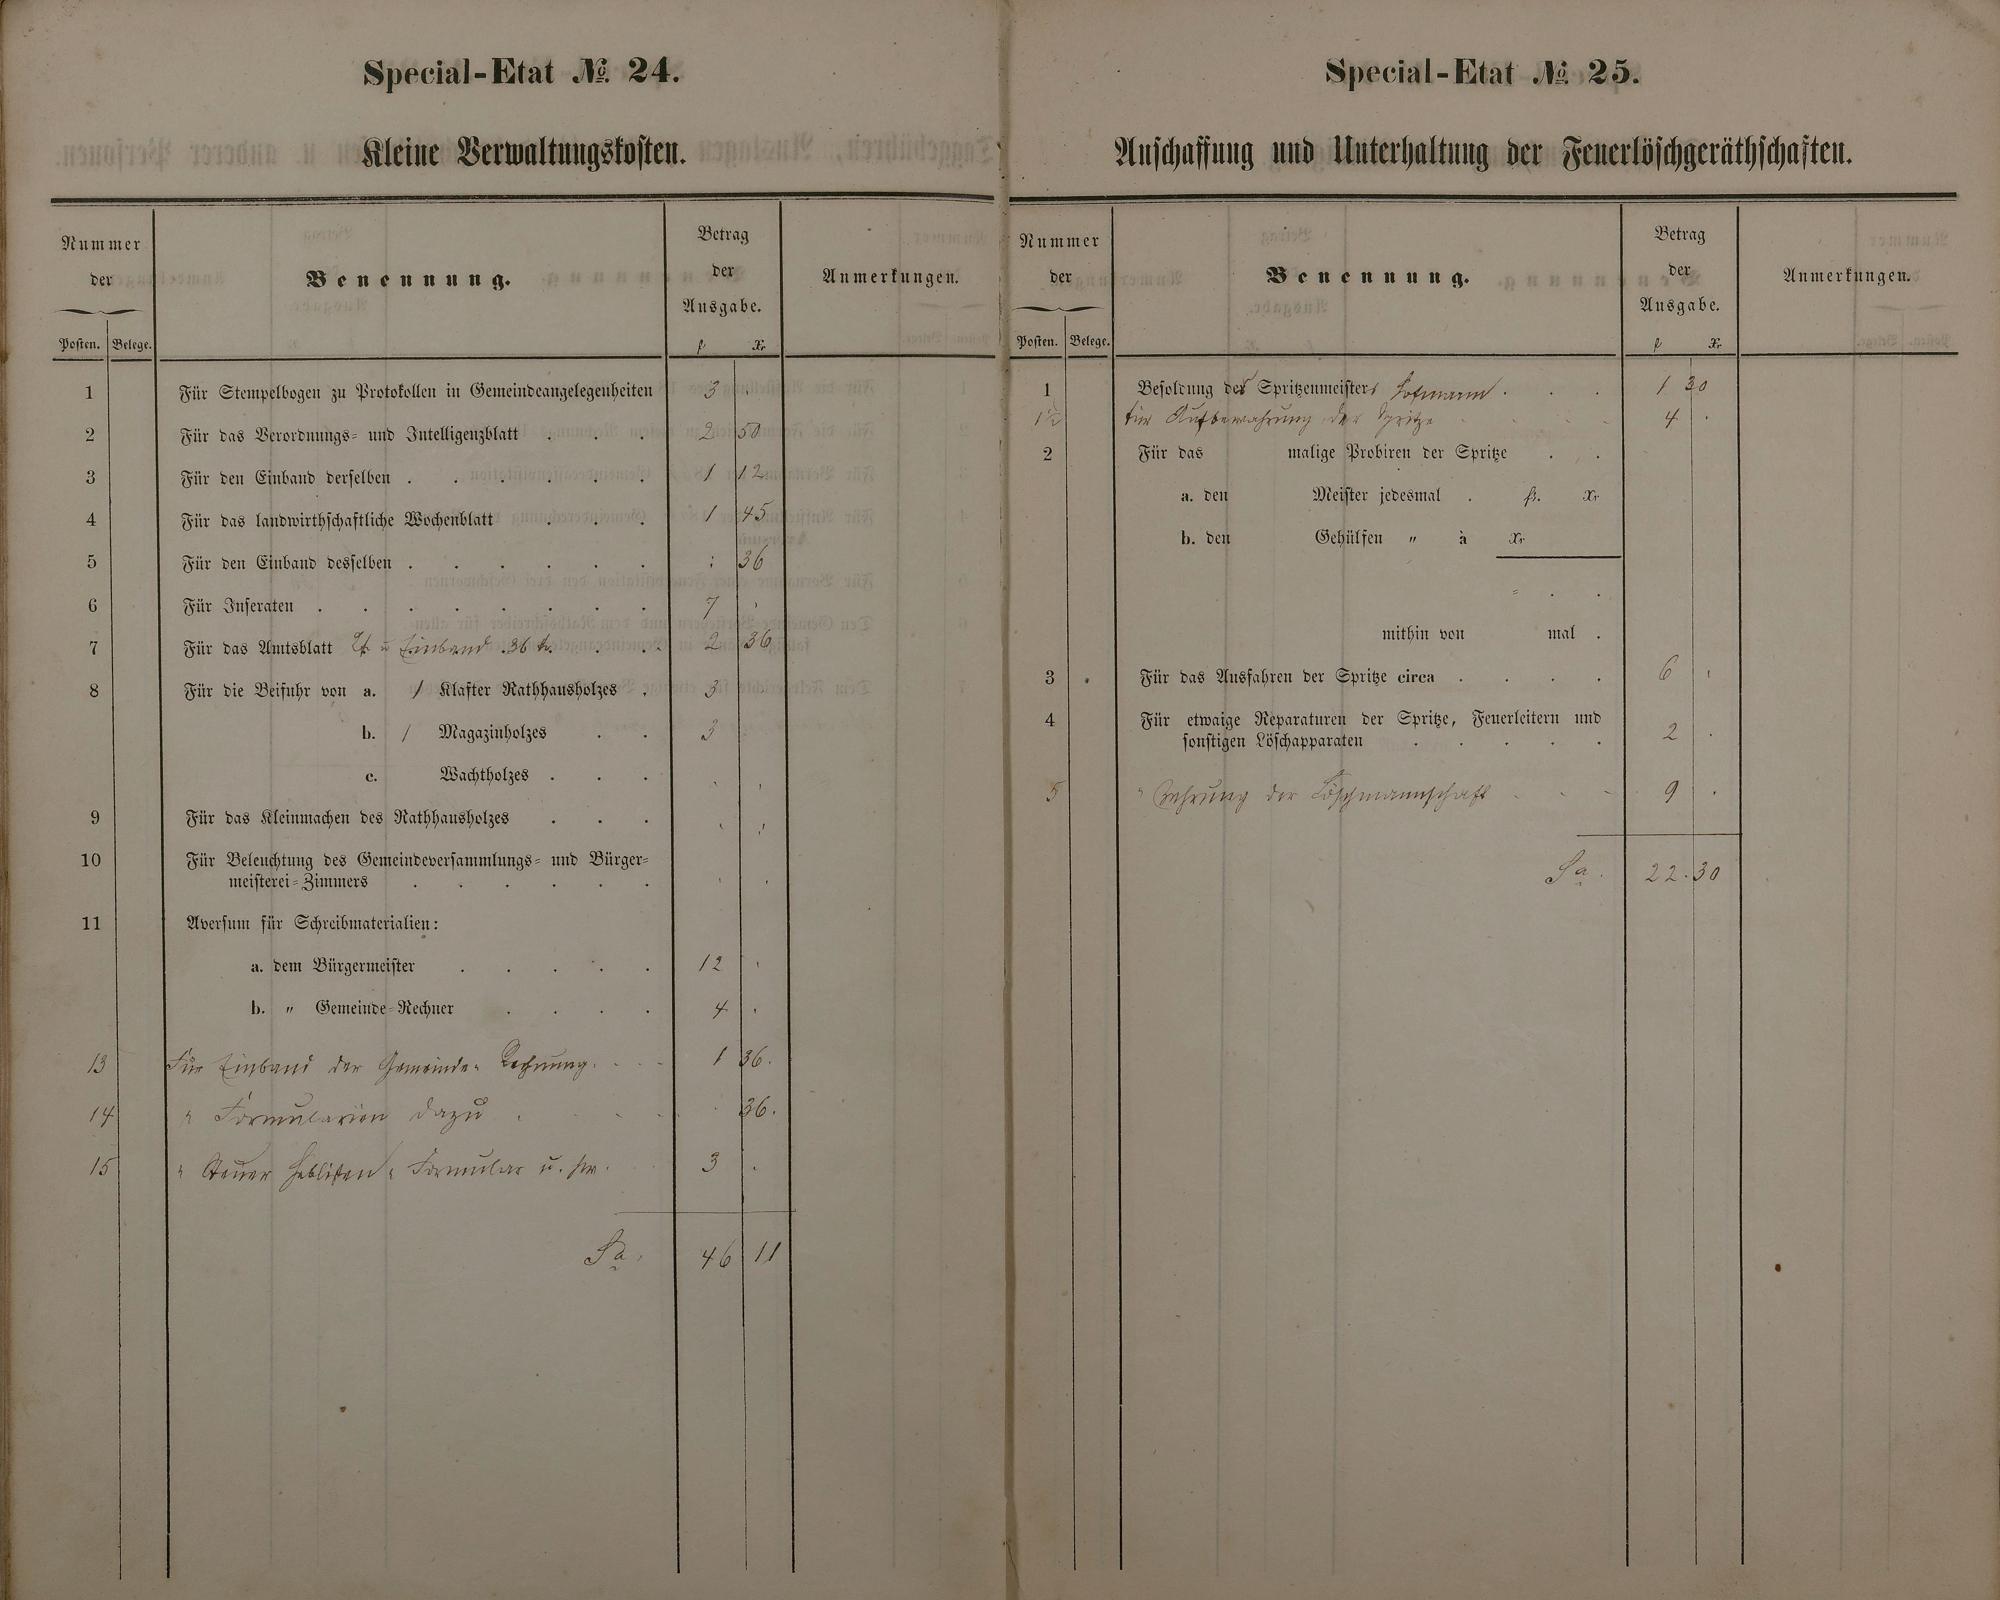 Special-Etat № 24.
Kleine Verwaltungskosten.
Nummer der
Posten. Belege.
Benennung.
Betrag der Ausgabe.
fl Xr
Anmerkungen.
1 Für Stempelbogen zu Protokollen in Gemeindeangelegenheiten 3 .
2 Für das Verordnungs- und Intelligenzblatt . . . 2 50
3 Für den Einband derselben . . . . . . 1 12
4 Für das landwirthschaftliche Wochenblatt . . . 1 45
5 Für den Einband desselben . . . . . . : 36
6 Für Inseraten . . . . . . . . 7 .
7 Für das Amtsblatt 2 f. u Einband 36 kr. . . 2 36
8 Für die Beifuhr von a. 1 Klafter Rathhausholzes . 3
b. 1 Magazinholzes . . 3
c. Wachtholzes . . . . .
9 Für das Kleinmachen des Rathhausholzes . . . . .
10 Für Beleuchtung des Gemeindeversammlungs- und Bürger-
meisterei-Zimmers . . . . . . . .
11 Aversum für Schreibmaterialien:
a. dem Bürgermeister . . . . . 12 .
b. " Gemeinde-Rechner . . . . 4 .
13 Für Einband der Gemeinde-Rechnung. . . . 1 36.
14 " Formularien dazu . . . . 36.
15 " Steuer Heblisten " Formular u. sw. 3 .
Sa. 46 11
Special-Etat № 25.
Anschaffung und Unterhaltung der Feuerlöschgeräthschaften.
Nummer der
Posten. Belege.
Benennung.
Betrag der Ausgabe.
fl Xr
Anmerkungen.
1 Besoldung des Spritzenmeisters Hofmann . . . 1 30
1½ für Aufbewahrung der Spritze . . . 4 .
2 Für das malige Probiren der Spritze . .
a. den Meister jedesmal . fl. Xr
b. den Gehülfen " à Xr
" . .
mithin von mal .
3 Für das Ausfahren der Spritze circa . . . . 6 .
4 Für etwaige Reparaturen der Spritze, Feuerleitern und
sonstigen Löschapparaten . . . . . 2 .
5 " Zehrung der Löschmannschaft . . . 9 .
Sa. 22.30